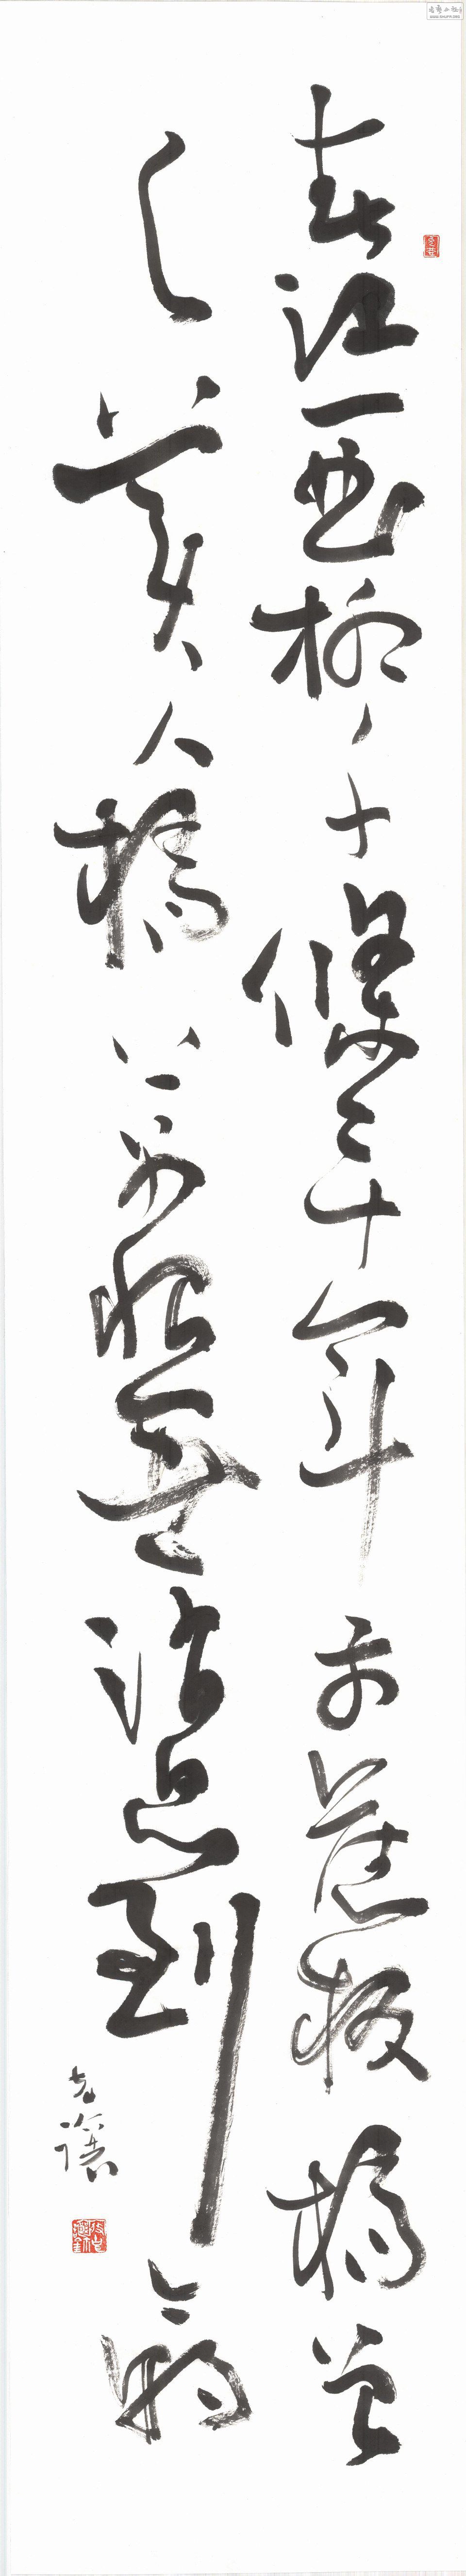 春江一曲柳千條二十年前舊板橋曾
與美人橋上別恨無消息到今朝